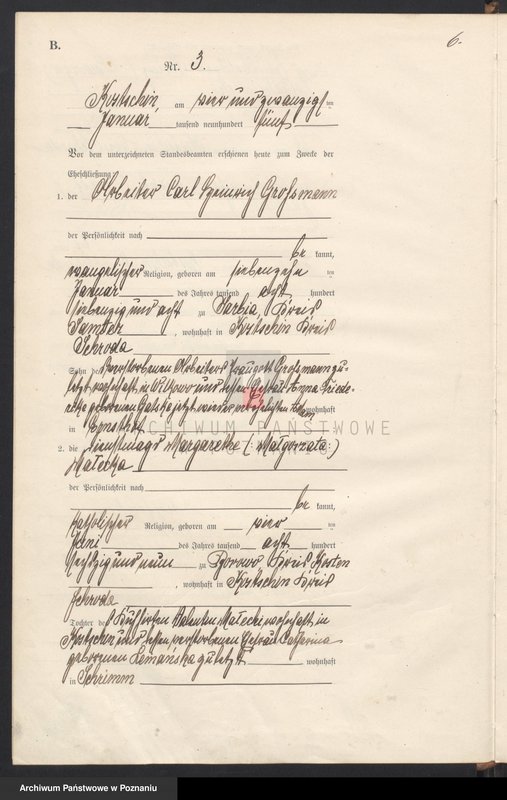 B.
6.
Nr. 3.
Kostschin, am vier und zwanzigsten
Januar tausend neunhundert fünf
Vor dem unterzeichneten Standesbeamten erschienen heute zum Zwecke der
Eheschließung:
1. der Arbeiter Carl Heinrich Großmann
der Persönlichkeit nach
be kannt,
evangelischer Religion, geboren am siebenzehn ten
Januar des Jahres tausend acht hundert
siebenzig und acht zu Barbia, Kreis
Samter, wohnhaft in Kostschin Kreis
Schroda
Sohn des verstorbenen Arbeiters Traugott Großmann zu-
letzt wohnhaft in und dessen Ehefrau Anna Friede-
ricke geborenen jetzt wieder wohnhaft
in
ARCHIWUM PAŃSTWOWE
2. die Dienstmagd Margarethe (: Małgorzata :)
Małecka
der Persönlichkeit nach
be kannt,
katholischer Religion, geboren am vier ten
Juni des Jahres tausend acht hundert
sechzig und neun zu Kreis Kosten
, wohnhaft in Kostschin Kreis
Schroda
Tochter des Kuhhirten Valentin Małecki wohnhaft in
Kostschin und dessen verstorbenen Ehefrau Catharina
geborenen Lemańska zuletzt wohnhaft
in Schrimm
Archiwum Państwowe w Poznaniu